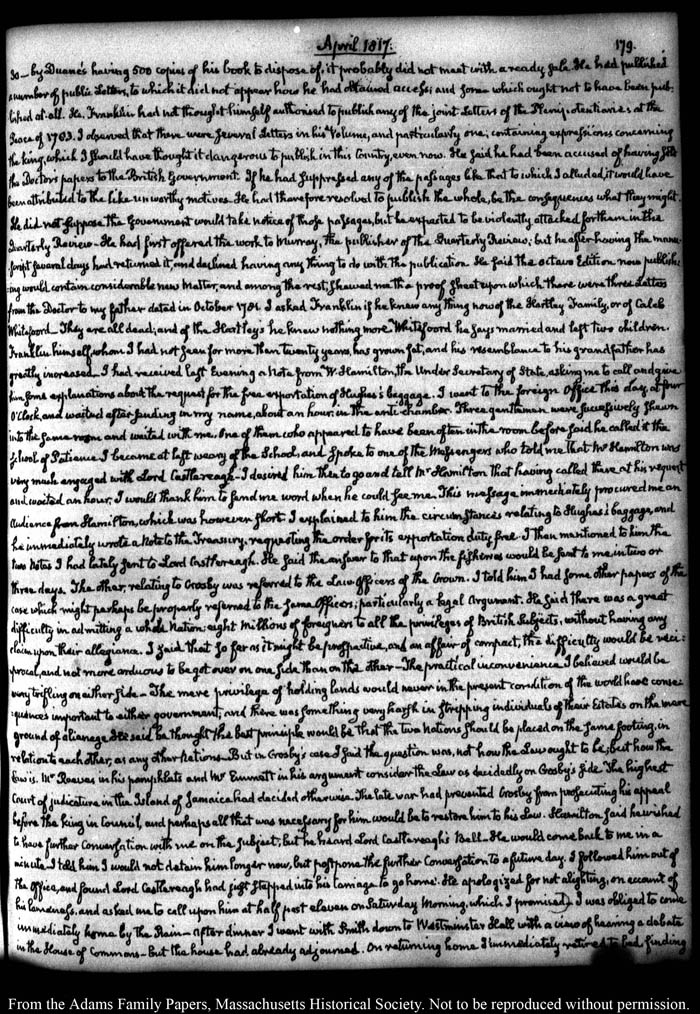 April 1817.
179.
so — by Duane's having 500 copies of his book to dispose of; it probably did not meet with a ready sale. He had published
a number of public Letters, to which it did not appear how he had obtained access; and some which ought not to have been pub-
lished at all. Mr. Franklin had not thought himself authorised to publish any of the joint Letters of the Plenipotentiaries at the
Peace of 1783. I observed that there were several Letters in his Volume, and particularly one, containing expressions concerning
the king, which I should have thought it dangerous to publish in this Country, even now. He said he had been accused of having sold
the Doctor's papers to the British Government. If he had suppressed any of the passages like that to which I alluded, it would have
been attributed to the like unworthy motives. He had therefore resolved to publish the whole, be the consequences what they might.
He did not suppose the Government would take notice of those passages, but he expected to be violently attacked for them in the
Quarterly Review — He had first offered the work to Murray, the publisher of the Quarterly Review; but he after having the manu-
script several days had returned it, and declined having any thing to do with the publication. He said the octavo Edition now publish-
ing would contain considerable new Matter, and among the rest, shewed me the proof sheet upon which there were three Letters
from the Doctor to my father dated in October 1781. I asked Franklin if he knew any thing now of the Hartley Family, or of Caleb
Whitefoord. They are all dead; and of the Hartley's he knew nothing more. Whitefoord he says married and left two children.
Franklin himself, whom I had not seen for more than twenty years, has grown fat, and his resemblance to his grandfather has
greatly increased. I had received last Evening a Note from W. Hamilton, the Under Secretary of State, asking me to call and give
him some explanations about the request for the free exportation of Hughes's baggage. I went to the foreign Office this day, at four
O'Clock, and waited after sending in my name, about an hour in the anti-chamber. Three gentlemen were successively shewn
into the same room and waited with me. One of them who appeared to have been often in the room before said he called it the
School of Patience. I became at last weary of the School, and spoke to one of the Messengers who told me that Mr. Hamilton was
very much engaged with Lord Castlereagh — I desired him then to go and tell Mr. Hamilton that having called there at his request
and waited an hour, I would thank him to send me word when he could see me. This message immediately procured me an
Audience from Hamilton, which was however short. I explained to him the circumstances relating to Hughes's baggage, and
he immediately wrote a Note to the Treasury, requesting the order for its exportation duty free. I then mentioned to him the
two Notes I had lately sent to Lord Castlereagh. He said the answer to that upon the fisheries would be sent to me in two or
three days. The other, relating to Crosby was referred to the Law Officers of the Crown. I told him I had some other papers of the
case which might perhaps be properly referred to the same Officers; particularly a legal Argument. He said there was a great
difficulty in admitting a whole Nation, eight Millions of foreigners to all the privileges of British Subjects, without having any
claim upon their allegiance. I said that so far as it might be prospective, and an affair of compact, the difficulty would be reci-
procal, and not more arduous to be got over on one side than on the other — The practical inconvenience I believed would be
very trifling on either side — The mere privilege of holding lands would never in the present condition of the world have conse-
quences important to either government; and there was something very harsh in stripping individuals of their Estates on the mere
ground of alienage. He said he thought the best principle would be that the two Nations should be placed on the same footing, in
relation to each other, as any other Nations. But in Crosby's case I said the question was, not how the Law ought to be, but how the
Law is. Mr. Reeves in his pamphlet and Mr. Emmett in his argument consider the Law as decidedly on Crosby's side. The highest
Court of judicature in the Island of Jamaica had decided otherwise. The late war had prevented Crosby from prosecuting his appeal
before the king in Council, and perhaps all that was necessary for him would be to restore him to his Law. Hamilton said he wished
to have further Conversation with me on the subject, but he heard Lord Castlereagh's Bell. He would come back to me in a
minute — I told him I would not detain him longer now, but postpone the further Conversation to a future day. I followed him out of
the Office, and found Lord Castlereagh had just stepped into his carriage to go home. He apologized for not alighting, on account of
his lameness, and asked me to call upon him at half past eleven on Saturday Morning, which I promised. I was obliged to come
immediately home by the Rain — After dinner I went with Smith down to Westminster Hall with a view of hearing a debate
in the House of Commons — but the house had already adjourned. On returning home I immediately retired to bed, finding
From the Adams Family Papers, Massachusetts Historical Society. Not to be reproduced without permission.